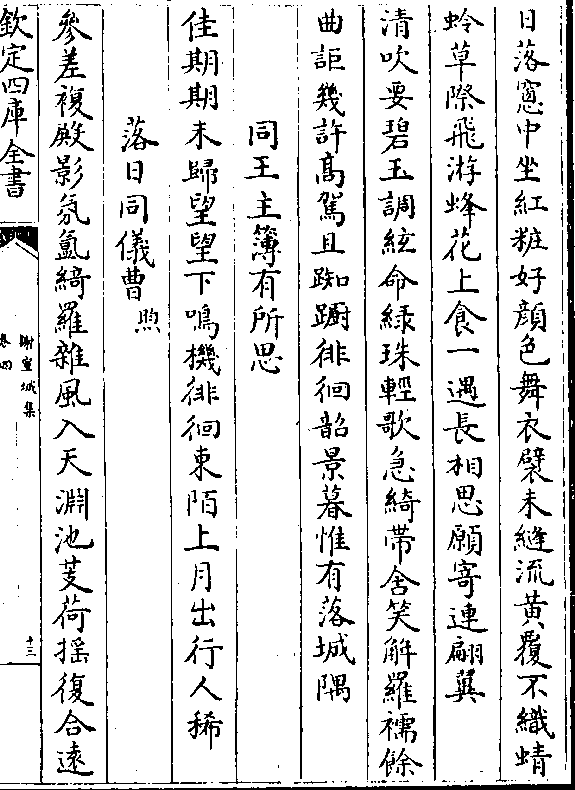 日落窻中坐紅粧好顔色舞衣襞未縫流黄覆不織蜻
蛉草際飛游蜂花上食一遇長相思願寄連翩翼
清吹要碧玉調絃命緑珠輕歌急綺帶含笑解羅襦餘
曲詎幾許髙駕且踟蹰徘徊韶景暮惟有落城隅
同王主簿有所思
佳期期未歸望望下鳴機徘徊東陌上月出行人稀
落日同儀曹煦
參差複殿影氛氲綺羅雜風入天淵池芰荷揺復合逺
欽定四庫全書
謝宣城集
卷四
十三